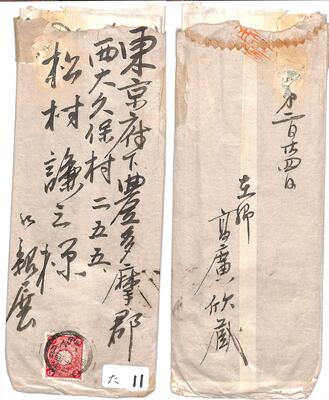 東京府下豊多摩郡
西大久保村二五五、
松村謙三様
御親展
た 11
二月廿四日
在郷
高廣欣蔵